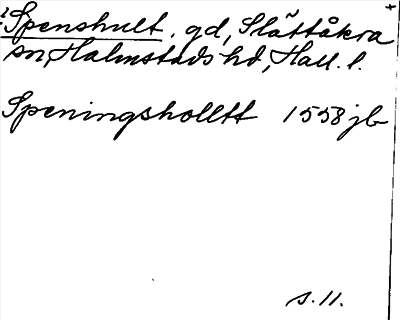 Spenshult. gd, Slättåkra
sn, Halmstads hd, Hall. l.
Speningsholltt 1558 jb
s. 11.